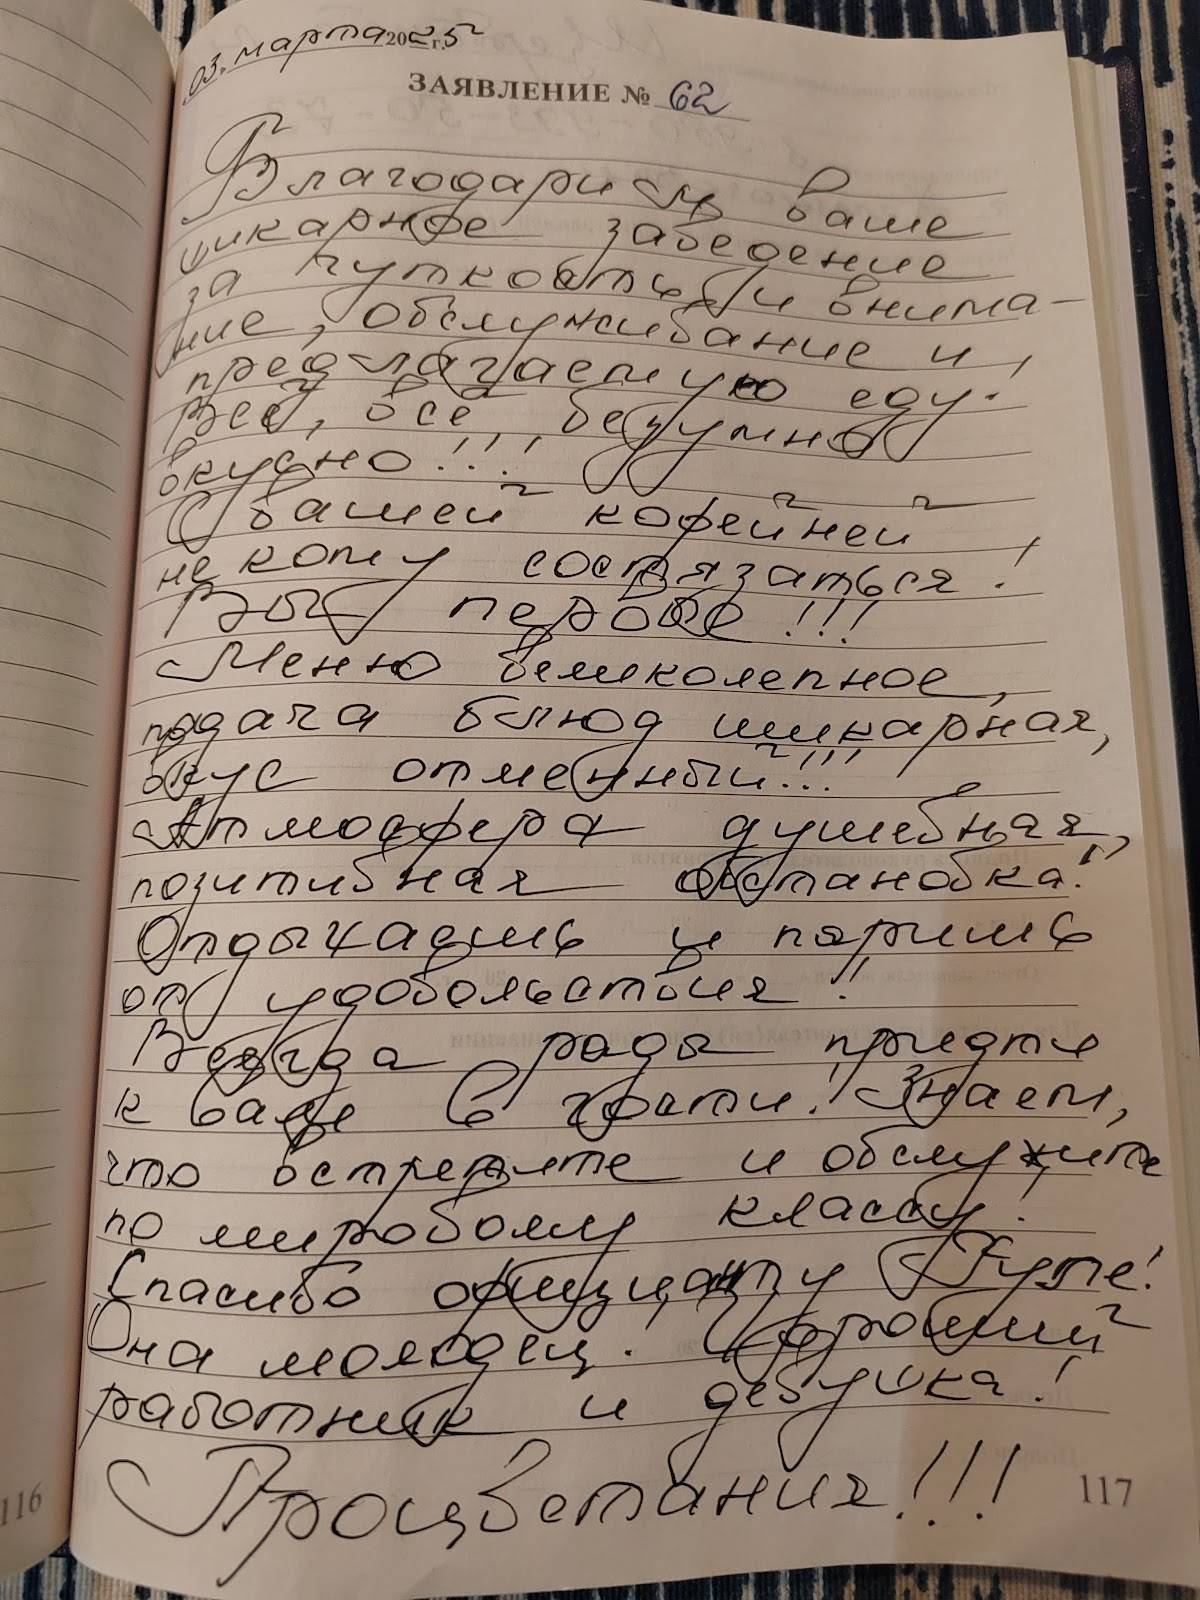 03. марта 2025 г.
ЗАЯВЛЕНИЕ № 62
Благодарим ваше
шикарное заведение
за чуткость и внима-
ние, обслуживание и
предлагаемую еду.
Всё, всё безумно
вкусно!!!
С вашей кофейней
некому состязаться!
Вы первые!!!
Меню великолепное,
подача блюд шикарная,
вкус отменный!!!
Атмосфера душевная,
позитивная обстановка!
Отдыхаешь и паришь
от удовольствия!
Всегда рады придти
к вам в гости! Знаем,
что встретите и обслужите
по мировому классу!
Спасибо официанту
Она молодец!
работник и девушка!
Процветания!!!
116
117